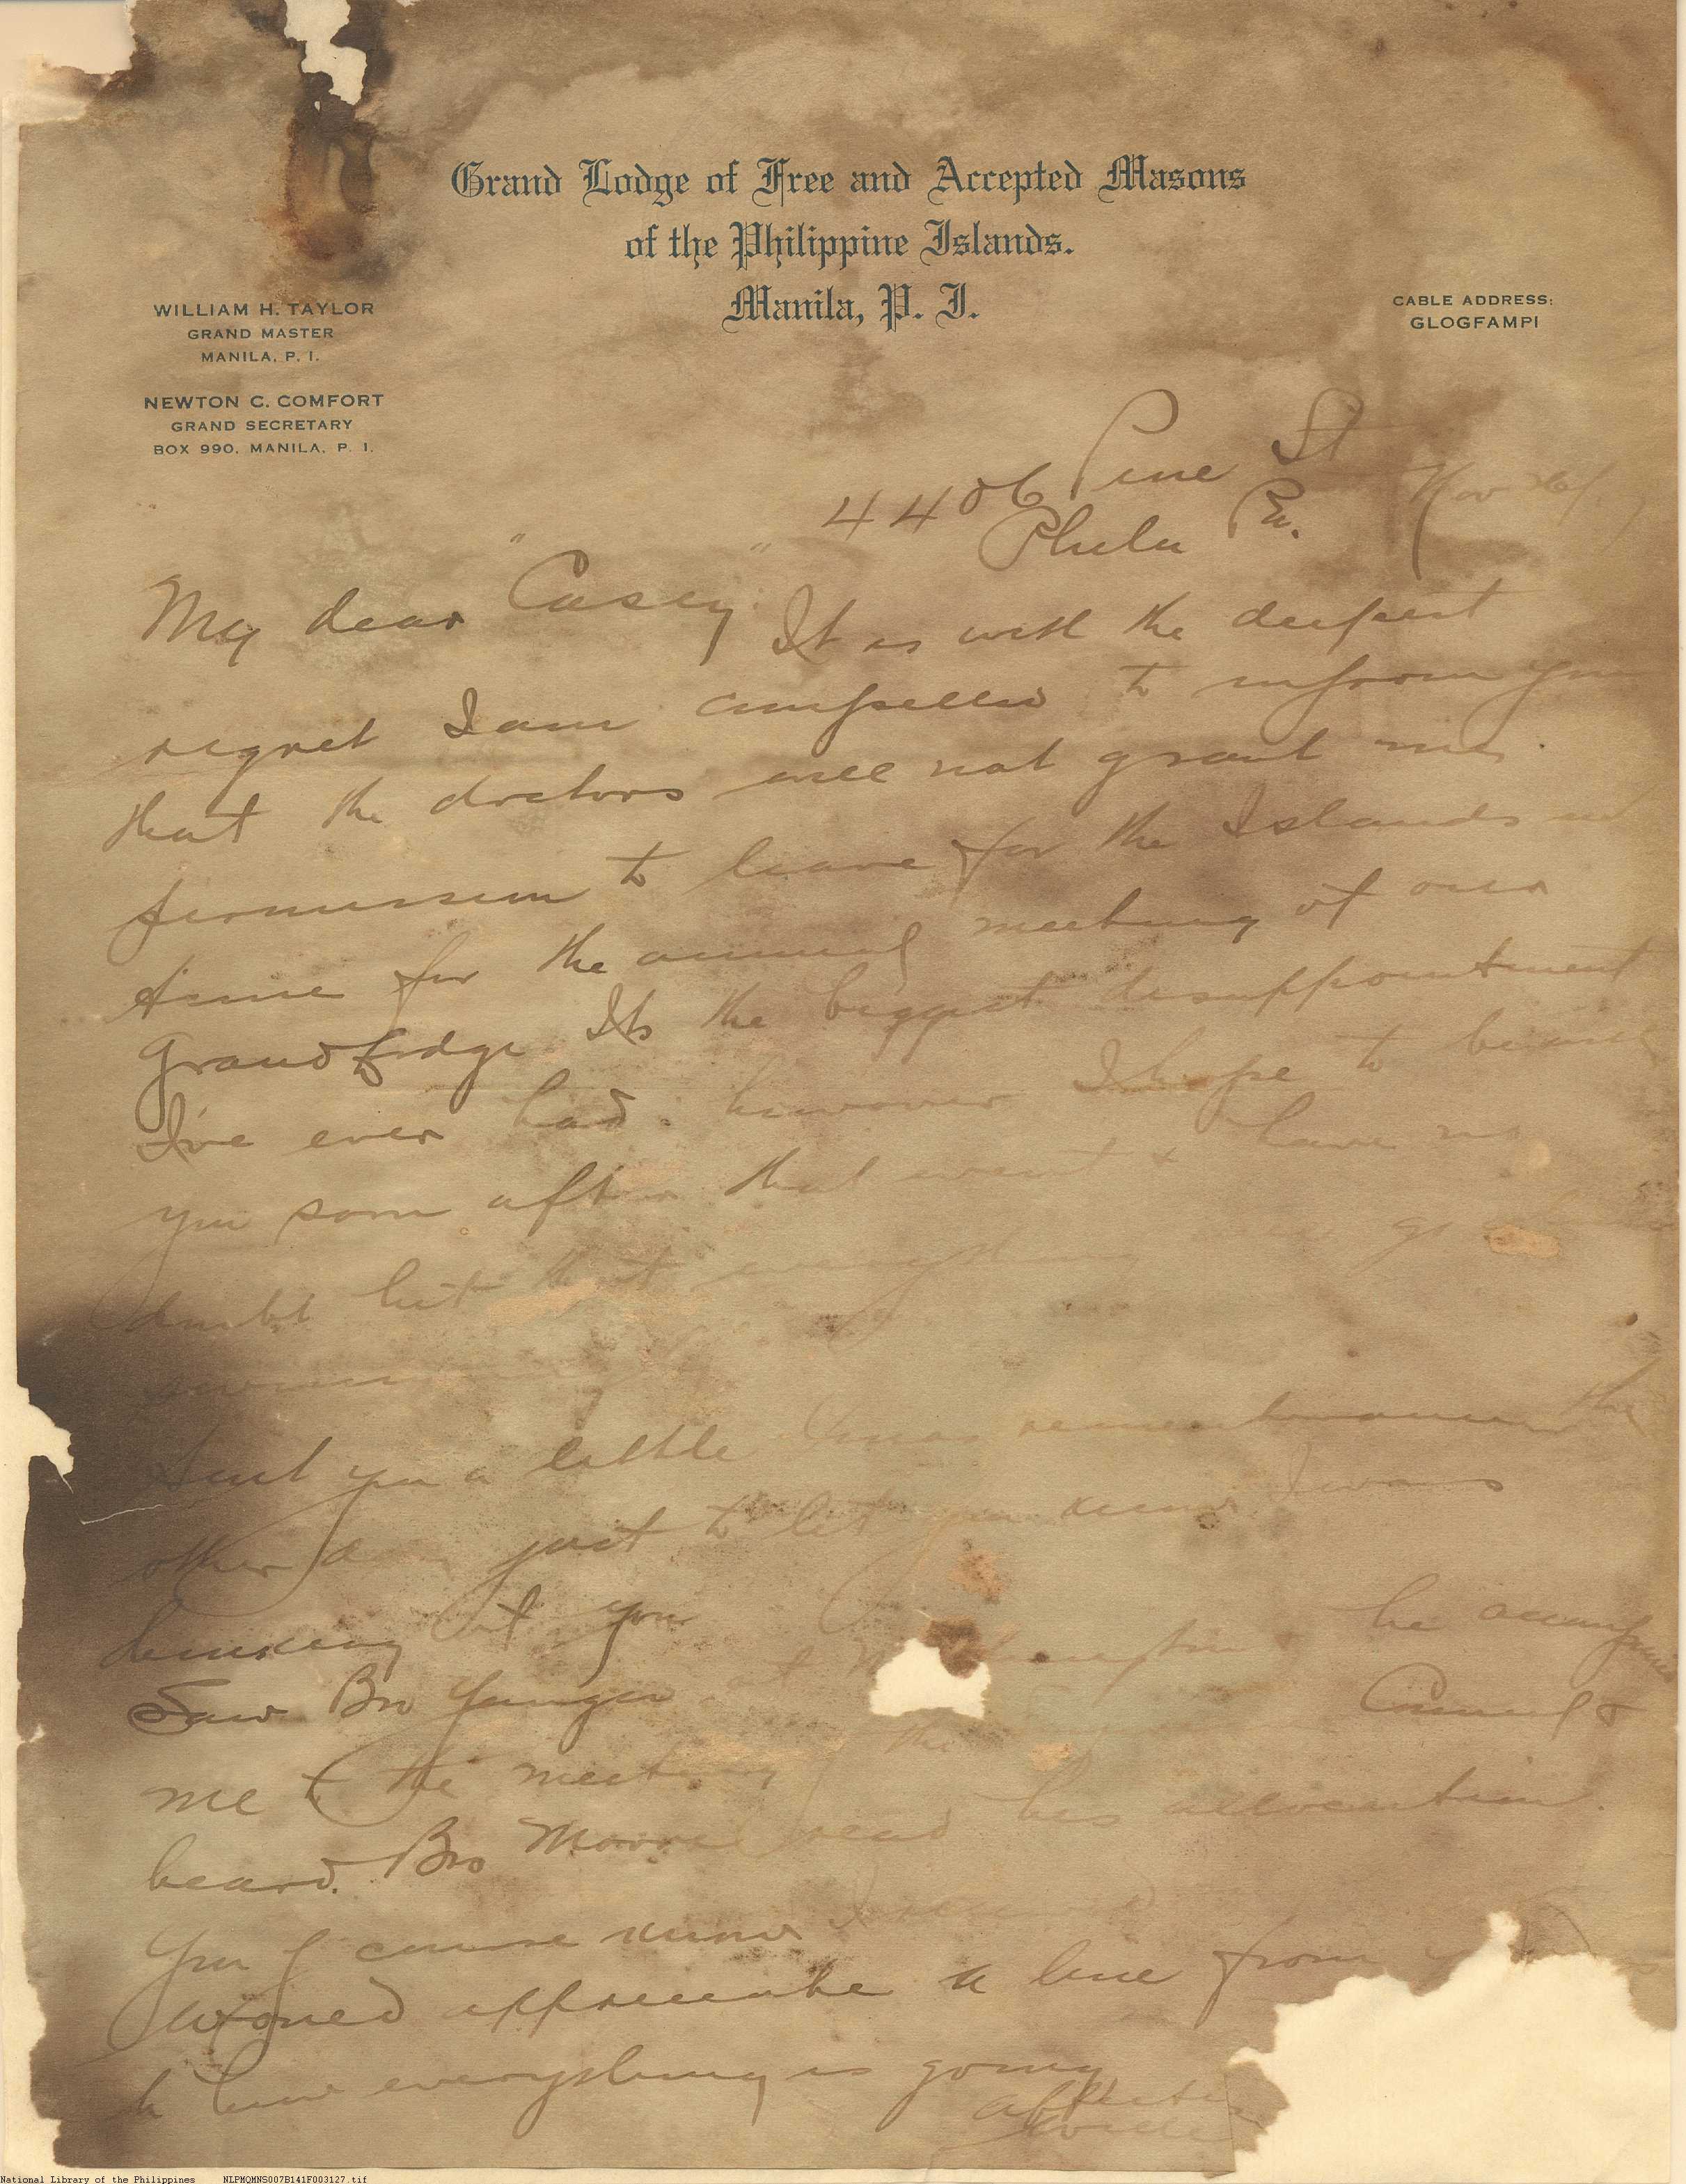 Grand Lodge of Free and Accepted Masons
of the Philippine Islands.
Manila, P. I.
WILLIAM H. TAYLOR
GRAND MASTER
MANILA, P. I.
NEWTON C. COMFORT
GRAND SECRETARY
BOX 990, MANILA, P. I.
CABLE ADDRESS:
GLOGFAMPI
4406 Pine St
Phila Pa. Nov
My dear "Casey" It is with the deepest
regret I am compelled to inform you
that the doctors will not grant me
permission to leave for the Islands in
time for the annual meeting of our
Grand Lodge Its the biggest disappointment
I've ever had. however I hope to be with
you soon after that event & have no
doubt but that everything will go
Sent you a little Xmas remembrance the
other day just to let you know I was
thinking of you
Saw Bro Younger at he accompanied
me to the meeting of the Council &
heard Bro Moore read his allocution.
You of course know I
would appreciate a line from
how everything is going
National Library of the Philippines NLPMQMNS007B141F003127.tif